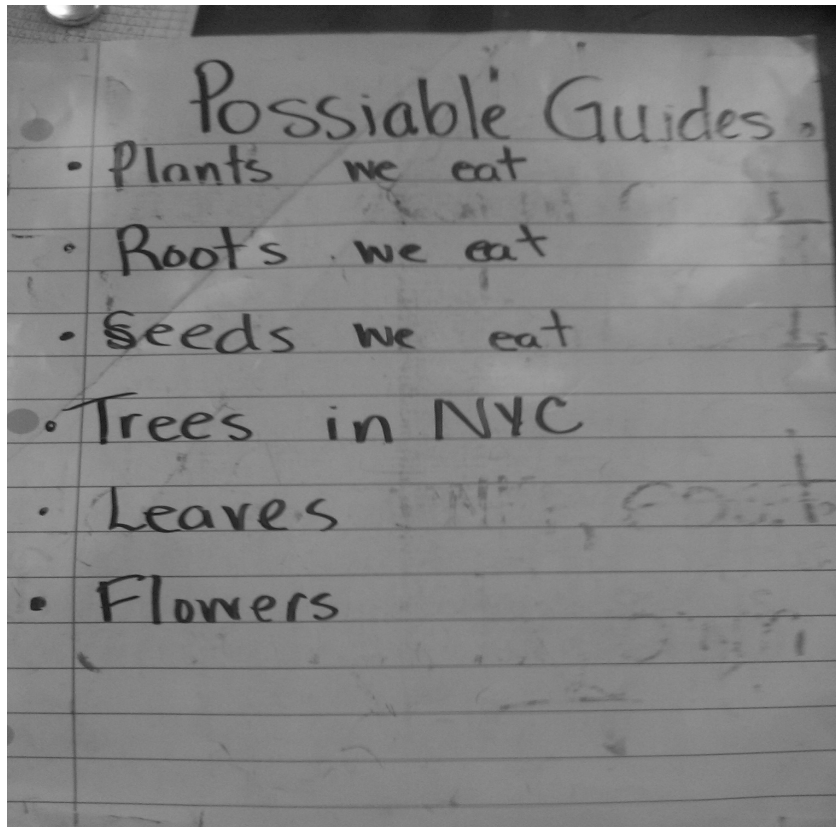 Possiable Guides.
• Plants we eat
• Roots we eat
• Seeds we eat
• Trees in NYC
• Leaves
• Flowers